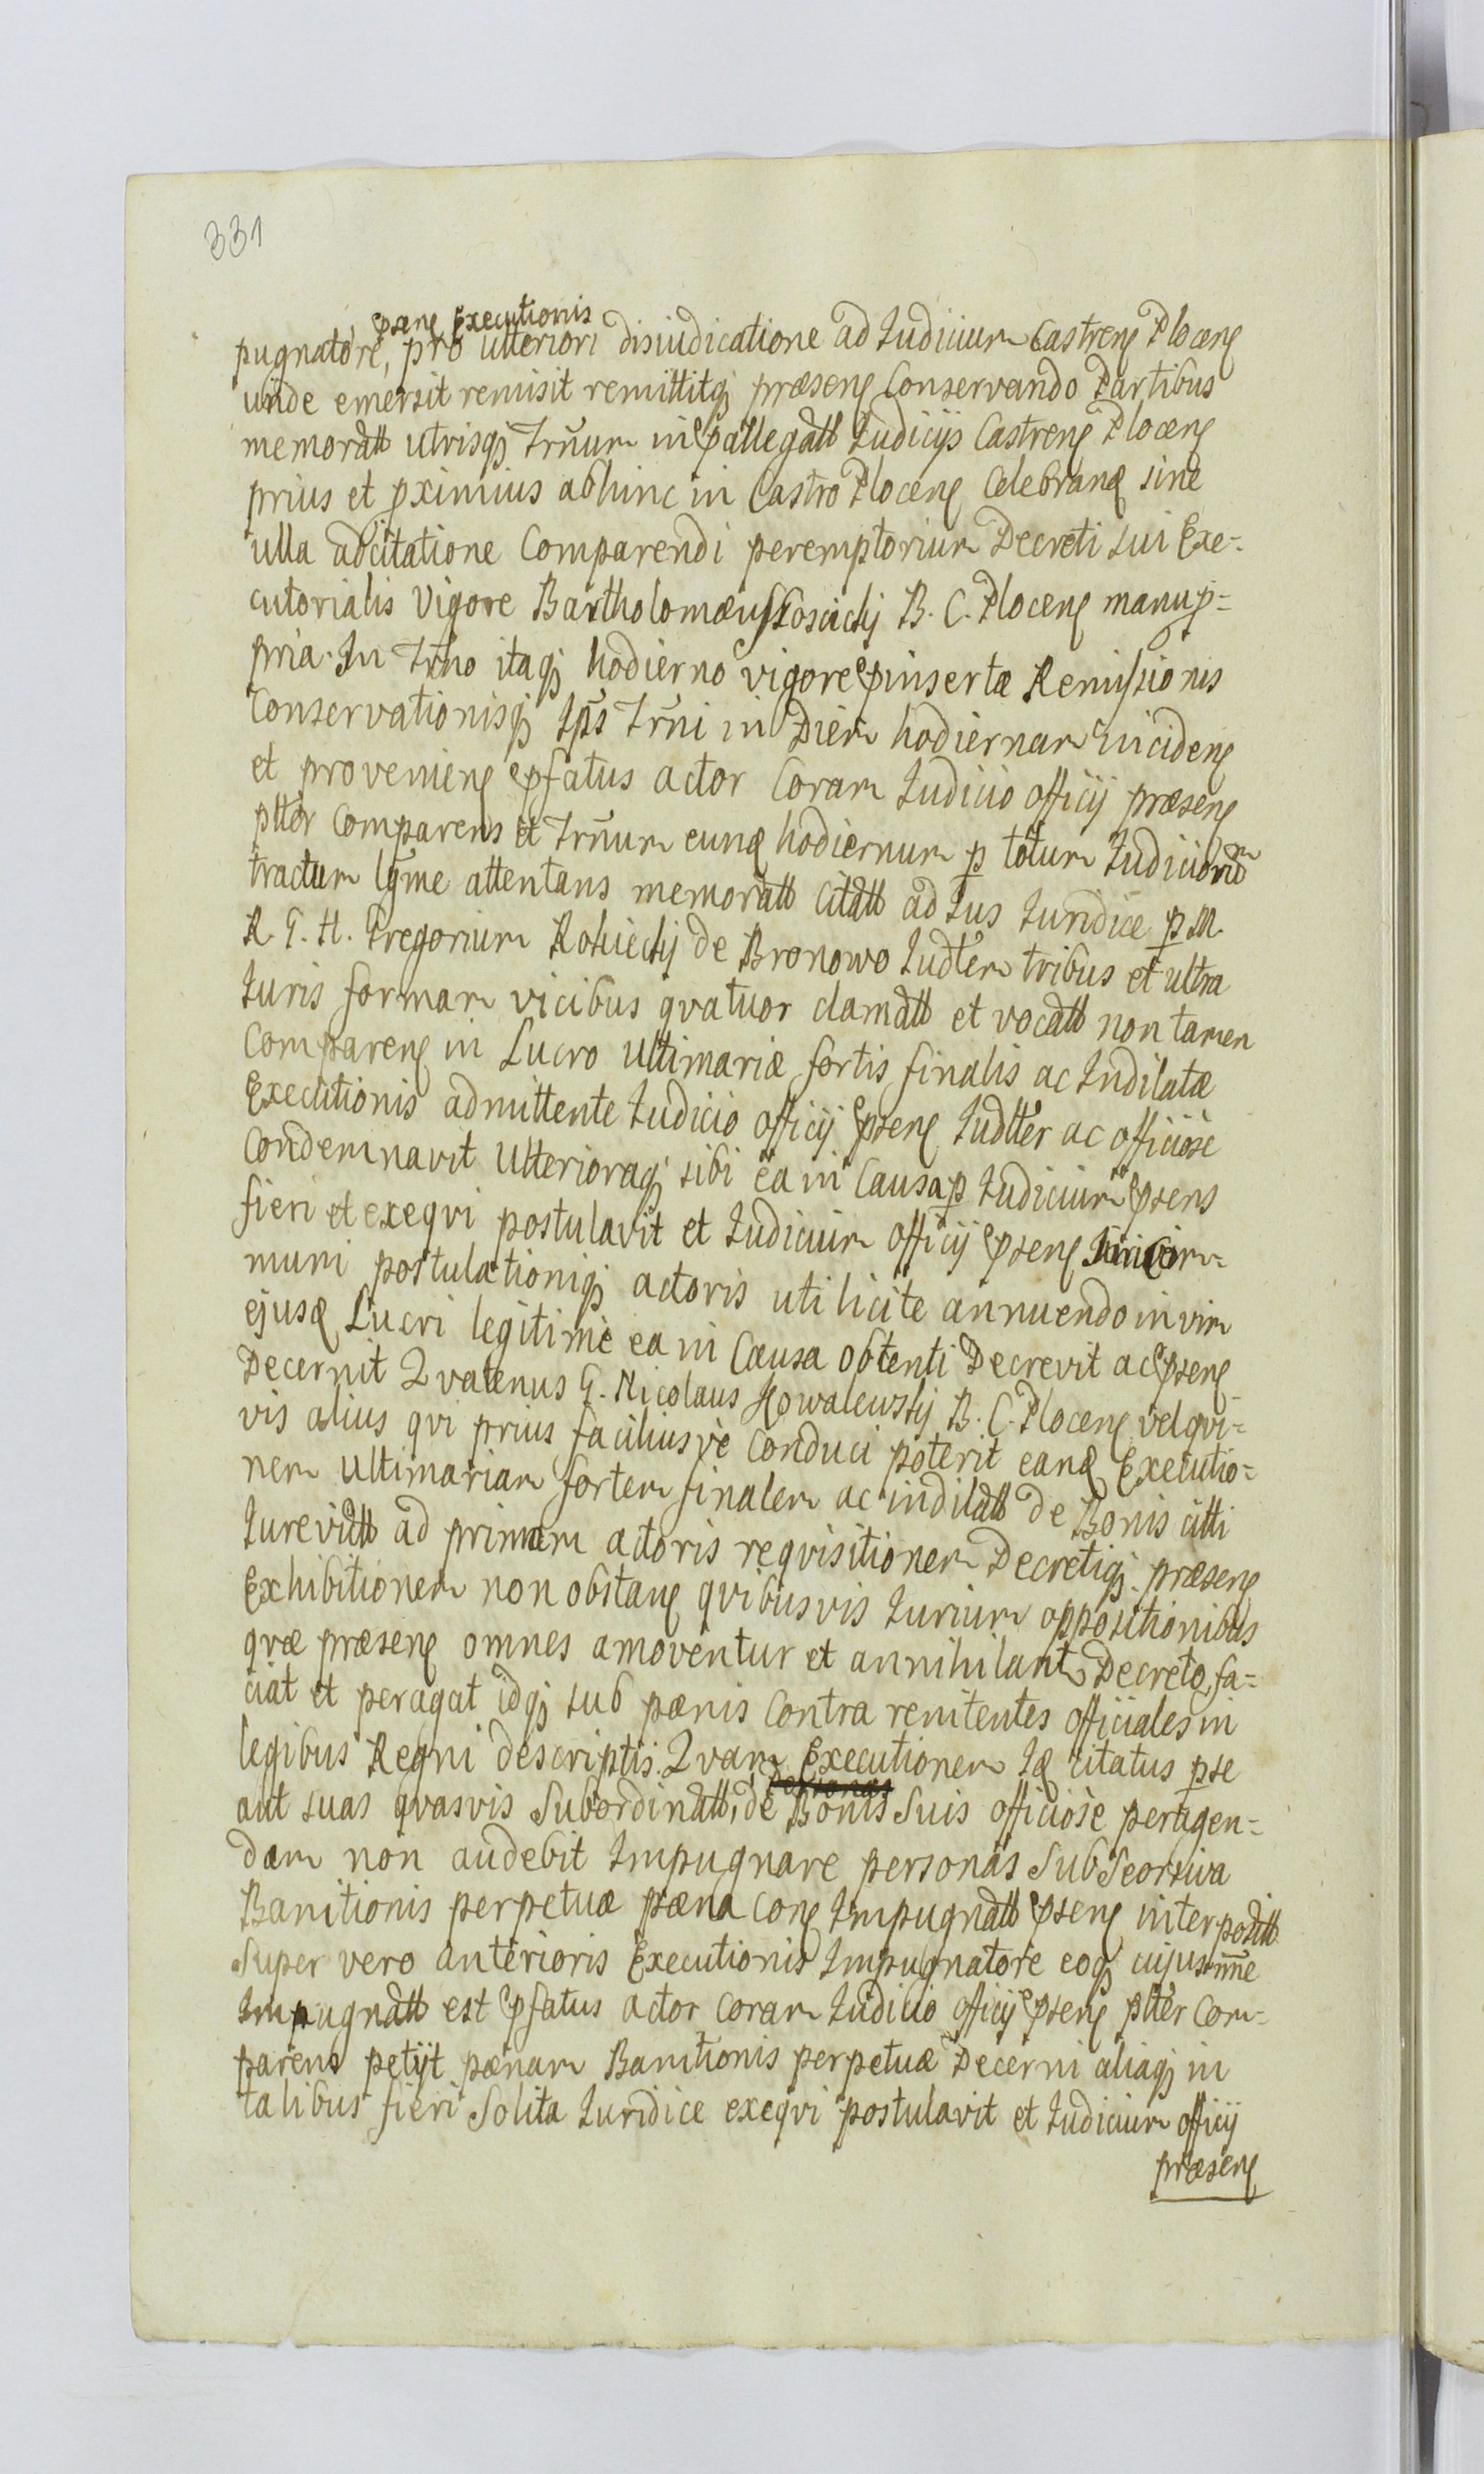 331
psens Executionis
pugnatore, pro ulteriori disiudicatione ad Iudicium Castrens Plocens
unde emersit remisit remittitq præsens Conservando Partibus
memoratt utrisq Trnum in pallegatt Iudicijs Castrens Plocens
prius et pximius abhinc in Castro Plocens Celebrand sine
ulla adcitatione Comparendi peremptorium Decreti sui Exe=
cutorialis Vigore Bartholomæus B. C. Plocens manu p=
pria. In Trno itaq hodierno vigore pinsertæ Remissionis
Conservationisq Ips Trni in Diem hodiernam incidens
et proveniens pfatus actor Coram Iudicio officij præsens
plter Comparens et Trnum eund hodiernum p totum Iudiciorum
tractum lgme attentans memoratt citatt ad Ius Iuridice p M.
R. G. H. Gregorium de Bronowo Iudtem tribus et ultra
Iuris formam vicibus qvatuor clamatt et vocatt non tamen
Comparens in Lucro Ultimariæ fortis finalis ac Indilatæ
Executionis admittente Iudicio officij psens Iudlter ac officiose
Condemnavit Ulterioraq sibi ea in Causa p Iudicium psens
fieri et exeqvi postulavit et Iudicium officij psens Iuri Com=
muni postulationiq actoris uti licite annuendo in vim
ejusd Lucri legitimè ea in Causa obtenti Decrevit ac psens
Decernit Qvatenus G. Nicolaus Kowalewskj B. C. Plocens vel qvi=
vis alius qvi prius faciliusvè Conduci poterit eand Executio=
nem Ultimariam fortem finalem ac indilatt de Bonis citti
Iurevictt ad primam actoris reqvisitionem Decretiq præsens
Exhibitionem non obstans qvibusvis Iurium oppositionibus
qvæ præsens omnes amoventur et annihilantr Decreto, fa=
ciat et peragat idq sub pœnis Contra renitentes officiales in
legibus Regni descriptis. Qvam Executionem Id citatus p se
aut suas qvasvis Subordinatt, de Bonis Suis officiosè peragen=
dam non audebit Impugnare personas Sub Seorsiva
Banitionis perpetuæ pæna Cons Impugnatt psens interpositt
Super vero anterioris Executionis Impugnatore eoq cujus nne
Impugnatt est pfatus actor Coram Iudicio officij psens plter Com=
parens petijt pænam Banitionis perpetuæ Decerni aliaq in
talibus fieri Solita Iuridice exeqvi postulavit et Iudicium officij
præsens